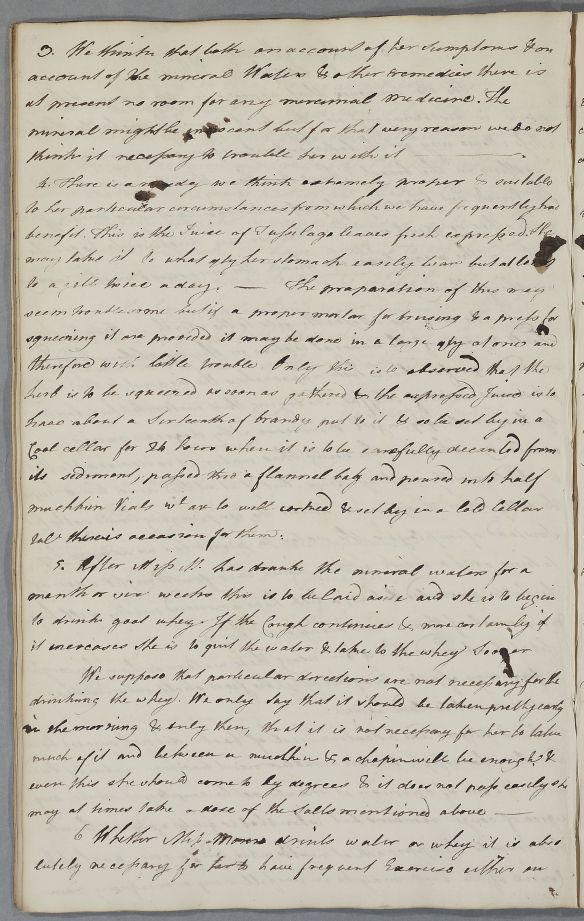 3. We think that both on account of her Symptoms & on
account of the mineral Waters & other remedies there is
at present no room for any mercurial medicine. The
mineral might be innocent but for that very reason we do not
think it necessary to trouble her with it
4. There is a remedy we think extremely proper & suitable
to her particular circumstances from which we have frequently had
benefit. This is the Juice of Tussilago leaves fresh expressed. She
may take it to what qty her stomach easily bear but at least
to a gill twice a day. — The praparation of this may
seem troublesome but if a proper mortar for bruising & a press for
squeezing it are provided it may be done in a large qty at once and
therefore with little trouble. Only this is to observed that the
herb is to be squeezed as soon as gathered & the expressed Juice is to
have about a Sixteenth of brandy put to it & so be set by in a
Cool cellar for 24 hours when it is to be carefully decanted from
its sediment, passed thro' a flannel bag and poured into half
mutchkin Vials wh are to well corked & set by in a Cold Cellar
till there is occasion for them.
5. After Miss M. has drank the mineral waters for a
month or six weeks this is to be laid aside and she is to begin
to drink goat whey. If the Cough continues & more certainly if
it increases she is to quit the water & take to the whey Sooner
We suppose that particular directions are not necessary for the
drinking the whey. We only say that it should be taken pretty early
in the morning & only then, that it is not necessary for her to take
much of it and between a mutchkin & a chopin will be enough &
even this she should come to by degrees & if it does not pass easily she
may at times take a dose of the Salts mentioned above —
6 Whether Miss drinks water or whey it is abso
lutely necessary for her to have frequent Exercise either on